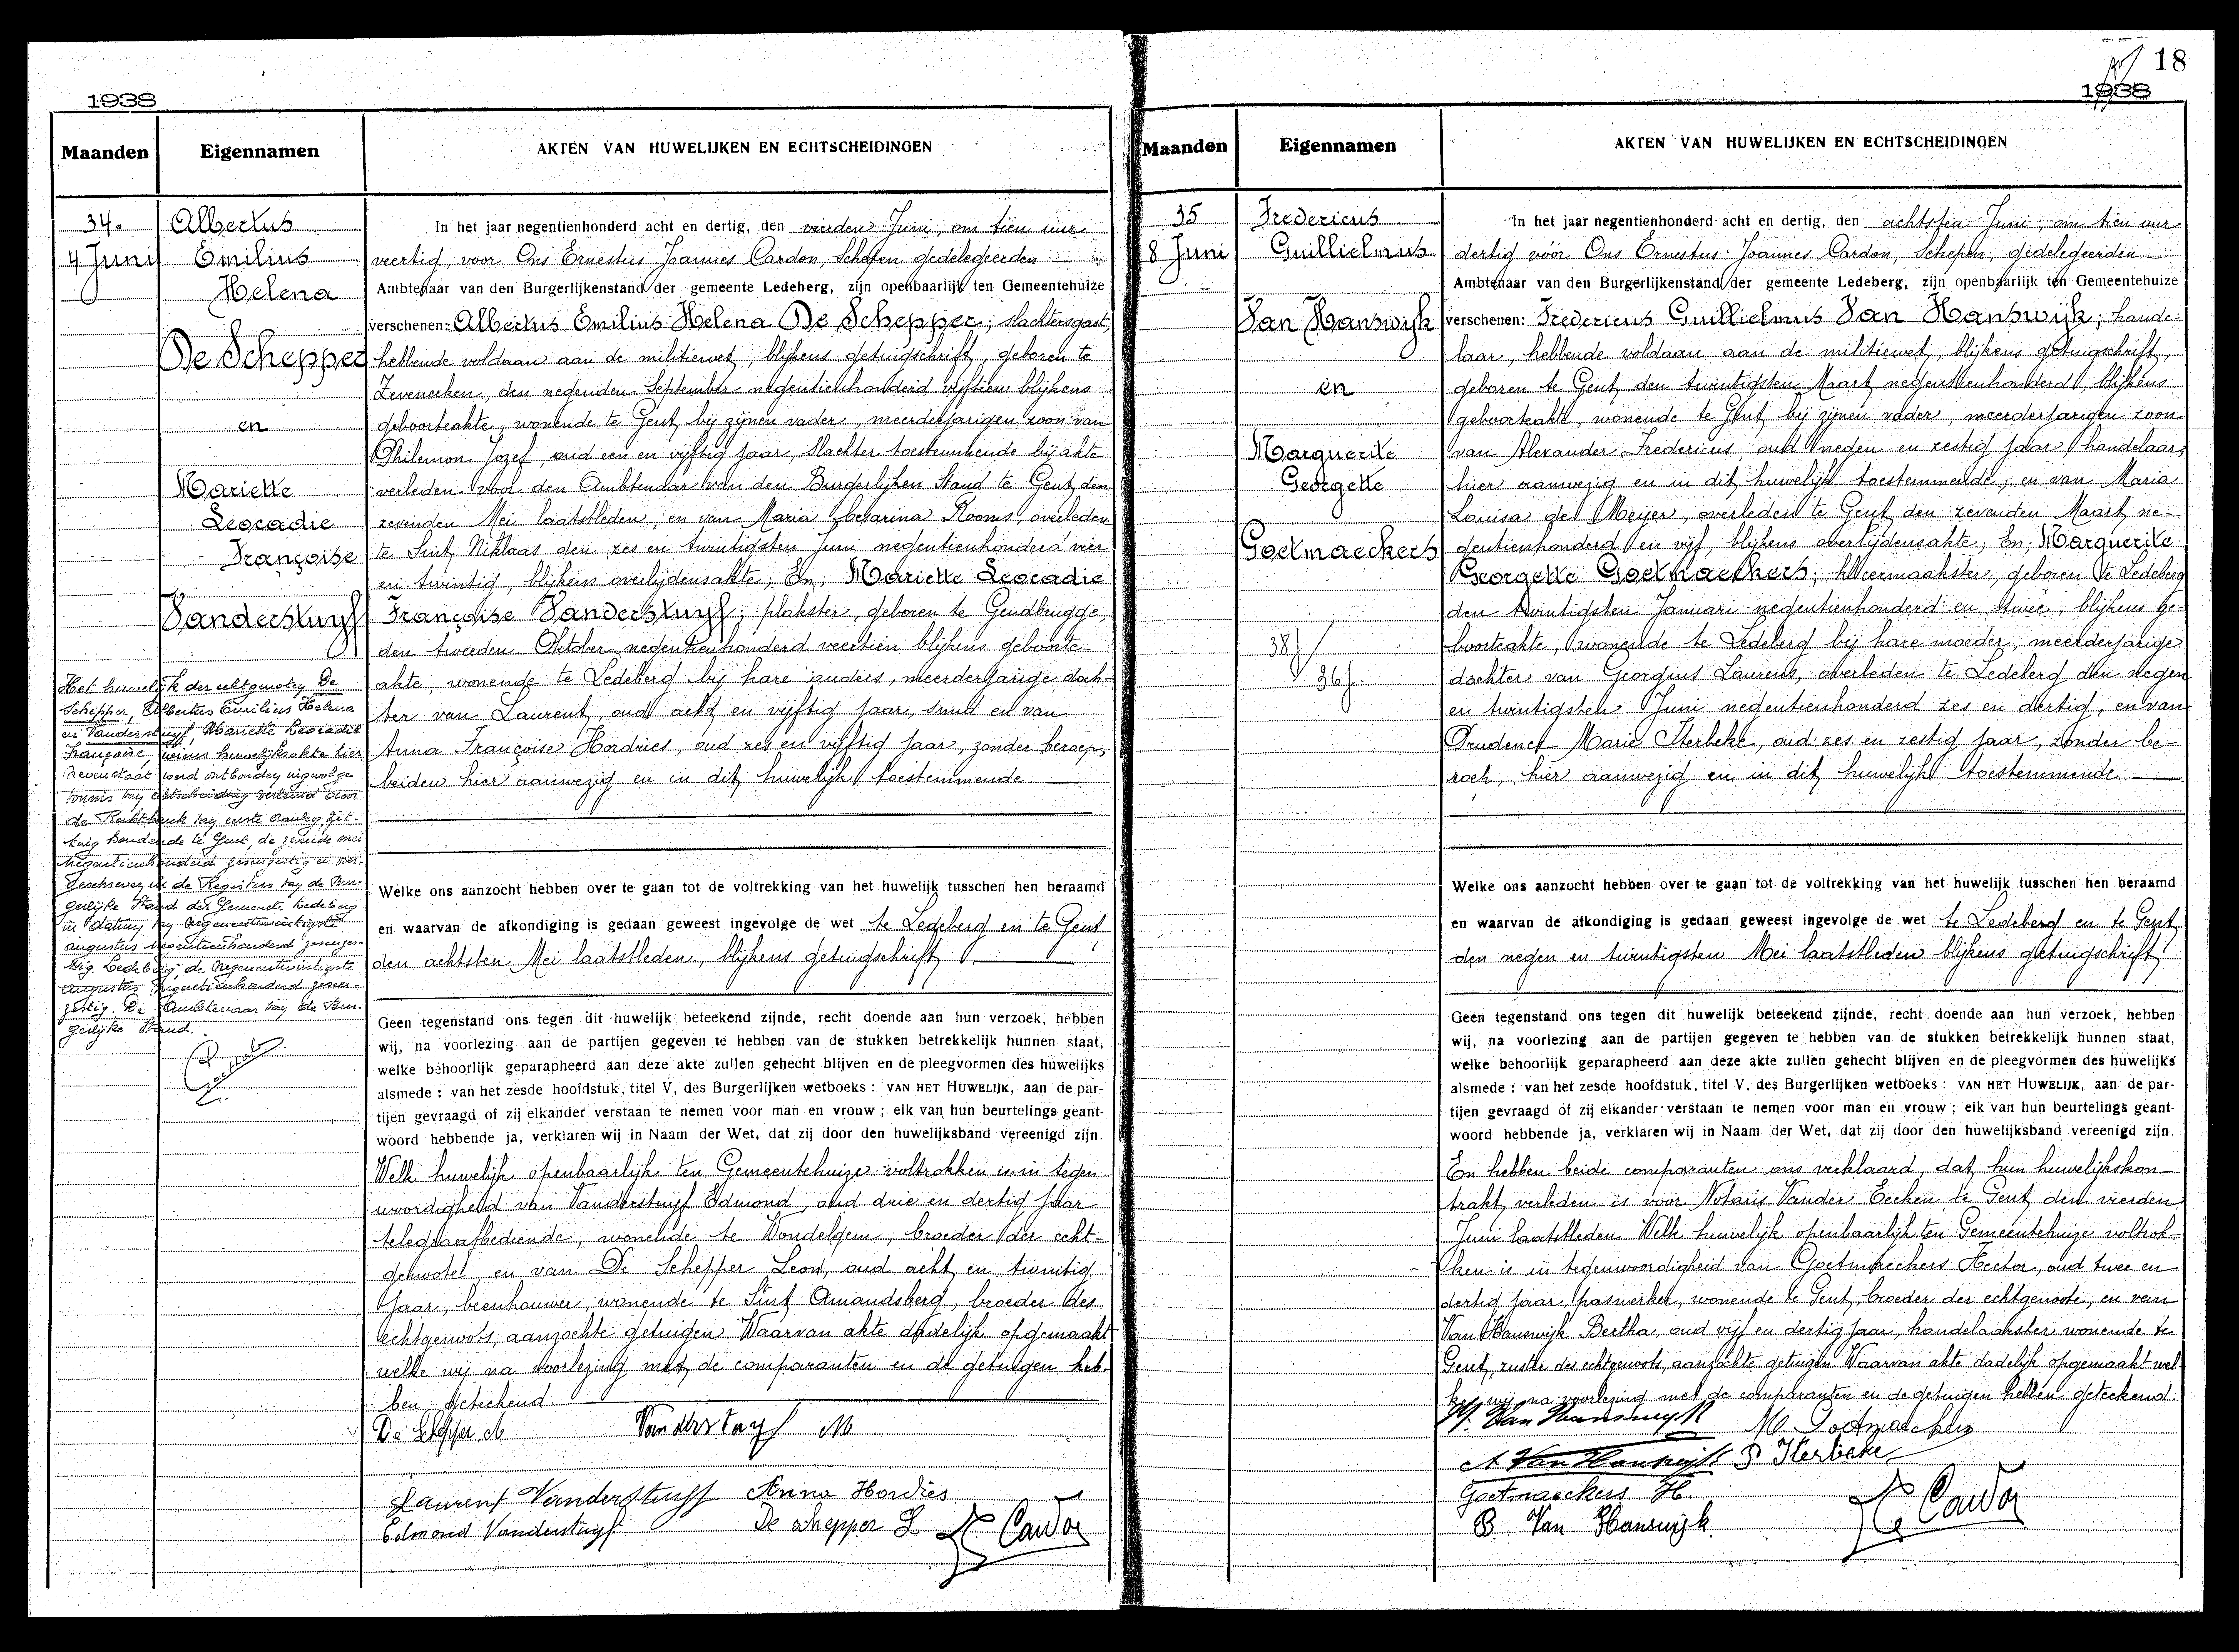 1938
Maanden
Eigennamen
AKTEN VAN HUWELIJKEN EN ECHTSCHEIDINGEN
34.
4 Juni
Albertus
Emilius
Helena
De Schepper
en
Mariette
Leocadie
Françoise
Vanderstuyf
Het huwelijk der echtgenoten De
Schepper, Albertus Emilius Helena
en Vanderstuyf, Mariette Leocadie
Françoise wiens huwelijksakte hier
nevenstaat werd ontbonden ingevolge
vonnis van echtscheiding verleend door
de Rechtbank van eerste aanleg, zit-
ting houdende te Gent, de zevende mei
negentienhonderd zesenzestig en over-
geschreven in de Registers van de Bur-
gerlijke Stand der Gemeente Ledeberg
in datum van negenentwintigste
augustus negentienhonderd zesenzes-
tig. Ledeberg, de negenentwintigste
augustus negentienhonderd zesen-
zestig. De Ambtenaar van de Bur-
gerlijke Stand.
In het jaar negentienhonderd acht en dertig, den vierden Juni, om tien uur
veertig, voor Ons Ernestus Joannes Cardon, Schepen gedelegeerden
Ambtenaar van den Burgerlijkenstand der gemeente Ledeberg, zijn openbaarlijk ten Gemeentehuize
verschenen: Albertus Emilius Helena De Schepper; slachtersgast,
hebbende voldaan aan de militiewet, blijkens getuigschrift, geboren te
Zeveneeken, den negenden September negentienhonderd vijftien blijkens
geboorteakte, wonende te Gent, bij zijnen vader, meerderjarigen zoon van
Philemon Jozef, oud een en vijftig jaar, slachter toestemmende bij akte
verleden voor den Ambtenaar van den Burgerlijken Stand te Gent den
zevenden Mei laatstleden, en van Maria Cesarina Rooms, overleden
te Sint Niklaas den zes en twintigsten Juni negentienhonderd vier
en twintig, blijkens overlijdensakte; En, Mariette Leocadie
Françoise Vanderstuyf; plakster, geboren te Gendbrugge,
den tweeden Oktober negentienhonderd veertien blijkens geboorte-
akte, wonende te Ledeberg bij hare ouders, meerderjarige doch-
ter van Laurent, oud acht en vijftig jaar, smid en van
Anna Françoise Hordies, oud zes en vijftig jaar, zonder beroep,
beiden hier aanwezig en in dit huwelijk toestemmende
Welke ons aanzocht hebben over te gaan tot de voltrekking van het huwelijk tusschen hen beraamd
en waarvan de afkondiging is gedaan geweest ingevolge de wet te Ledeberg en te Gent
den achtsten Mei laatstleden, blijkens getuigschrift
Geen tegenstand ons tegen dit huwelijk beteekend zijnde, recht doende aan hun verzoek, hebben
wij, na voorlezing aan de partijen gegeven te hebben van de stukken betrekkelijk hunnen staat,
welke behoorlijk geparapheerd aan deze akte zullen gehecht blijven en de pleegvormen des huwelijks
alsmede : van het zesde hoofdstuk, titel V, des Burgerlijken wetboeks : VAN HET HUWELIJK, aan de par-
tijen gevraagd of zij elkander verstaan te nemen voor man en vrouw ; elk van hun beurtelings geant-
woord hebbende ja, verklaren wij in Naam der Wet, dat zij door den huwelijksband vereenigd zijn.
Welk huwelijk openbaarlijk ten Gemeentehuize voltrokken is in tegen-
woordigheid van Vanderstuyf Edmond, oud drie en dertig jaar
telegraafbediende, wonende te Wondelgem, broeder der echt-
genoote, en van De Schepper Leon, oud acht en twintig
jaar, beenhouwer, wonende te Sint Amandsberg, broeder des
echtgenoots, aanzochte getuigen Waarvan akte dadelijk opgemaakt
welke wij na voorlezing met de comparanten en de getuigen heb-
ben geteekend.
De Schepper A
Vanderstuyf M
Laurent Vanderstuyf Anna Hordies
Edmond Vanderstuyf De Schepper L Cardon
18
1938
Maanden
Eigennamen
AKTEN VAN HUWELIJKEN EN ECHTSCHEIDINGEN
35
8 Juni
Fredericus
Guillielmus
Van Hanswijk
en
Marguerite
Georgette
Goetmaeckers
38
36
In het jaar negentienhonderd acht en dertig, den achtsten Juni, om tien uur
dertig vóór Ons Ernestus Joannes Cardon, Schepen, gedelegeerden
Ambtenaar van den Burgerlijkenstand der gemeente Ledeberg, zijn openbaarlijk ten Gemeentehuize
verschenen: Fredericus Guillielmus Van Hanswijk; hande-
laar, hebbende voldaan aan de militiewet, blijkens getuigschrift,
geboren te Gent den twintigsten Maart negentienhonderd, blijkens
geboorteakte, wonende te Gent bij zijnen vader, meerderjarigen zoon
van Alexander Fredericus, oud negen en zestig jaar handelaar,
hier aanwezig en in dit huwelijk toestemmende, en van Maria
Louisa de Meijer, overleden te Gent den zevenden Maart ne-
gentienhonderd en vijf, blijkens overlijdensakte; En, Marguerite
Georgette Goetmaeckers; kleermaakster, geboren te Ledeberg
den twintigsten Januari negentienhonderd en twee, blijkens ge-
boorteakte wonende te Ledeberg bij hare moeder, meerderjarige
dochter van Georgius Laurens, overleden te Ledeberg den negen
en twintigsten Juni negentienhonderd zes en dertig, en van
Prudence Marie Sterbeke, oud zes en zestig jaar, zonder be-
roep, hier aanwezig en in dit huwelijk toestemmende
Welke ons aanzocht hebben over te gaan tot de voltrekking van het huwelijk tusschen hen beraamd
en waarvan de afkondiging is gedaan geweest ingevolge de wet te Ledeberg en te Gent
den negen en twintigsten Mei laatstleden blijkens getuigschrift
Geen tegenstand ons tegen dit huwelijk beteekend zijnde, recht doende aan hun verzoek, hebben
wij, na voorlezing aan de partijen gegeven te hebben van de stukken betrekkelijk hunnen staat,
welke behoorlijk geparapheerd aan deze akte zullen gehecht blijven en de pleegvormen des huwelijks
alsmede : van het zesde hoofdstuk, titel V, des Burgerlijken wetboeks : VAN HET HUWELIJK, aan de par-
tijen gevraagd of zij elkander verstaan te nemen voor man en vrouw ; elk van hun beurtelings geant-
woord hebbende ja, verklaren wij in Naam der Wet, dat zij door den huwelijksband vereenigd zijn.
En hebben beide comparanten ons verklaard, dat hun huwelijkskon-
trakt verleden is voor Notaris Vander Eecken te Gent den vierden
Juni laatstleden Welk huwelijk openbaarlijk ten Gemeentehuize voltrok-
ken is in tegenwoordigheid van Goetmaeckers Hector, oud twee en
dertig jaar, paswerker, wonende te Gent, broeder der echtgenoote, en van
Van Hanswijk Bertha, oud vijf en dertig jaar, handelaarster wonende te
Gent, zuster des echtgenoots, aanzochte getuigen Waarvan akte dadelijk opgemaakt wel-
ke wij na voorlezing met de comparanten en de getuigen hebben geteekend.
Van Hanswijk M. Goetmaeckers
A Van Hanswijk P Sterbeke
Goetmaeckers H.
B. Van Hanswijk Cardon